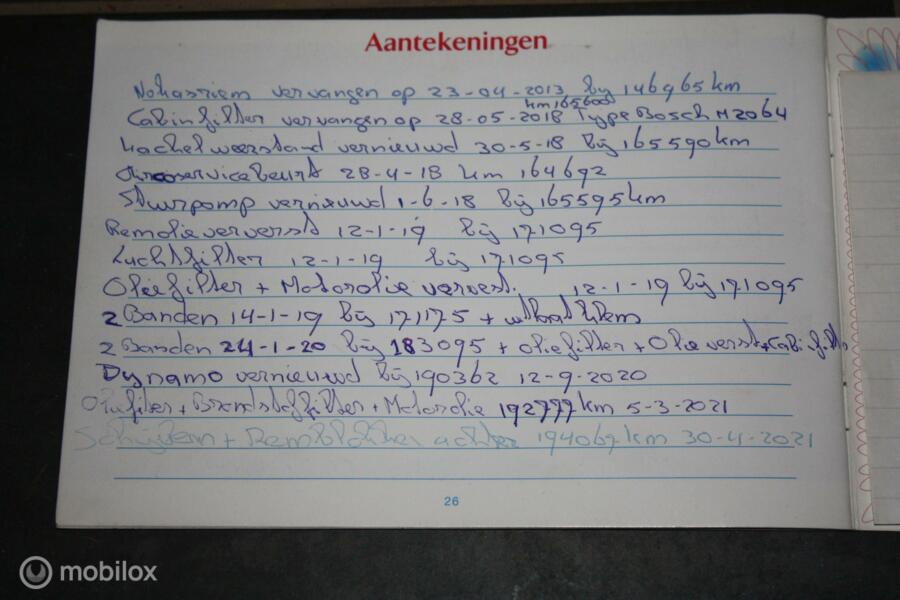 Aantekeningen
Nokasriem vervangen op 23-04-2013 bij 146965km
km 165600
Cabinfilter vervangen op 28-05-2018 Type Bosch M2064
kachelweerstand vernieuwd 30-5-18 bij 165590km
servicebeurt 28-4-18 km 164692
Stuurpomp vernieuwd 1-6-18 bij 165595km
Remolie ververst 12-1-19 bij 171095
Luchtfilter 12-1-19 bij 171095
Oliefilter + Motorolie ververst. 12-1-19 bij 171095
2 Banden 14-1-19 bij 171175 +
2 Banden 24-1-20 bij 183095 + oliefilter + Olie verst + Cabi filt
Dynamo vernieuwd bij 190362 12-9-2020
Oliefilter + Brandstoffilter + Motorolie 192777km 5-3-2021
Schijven + Remblokken achter 194067km 30-4-2021
26
mobilox